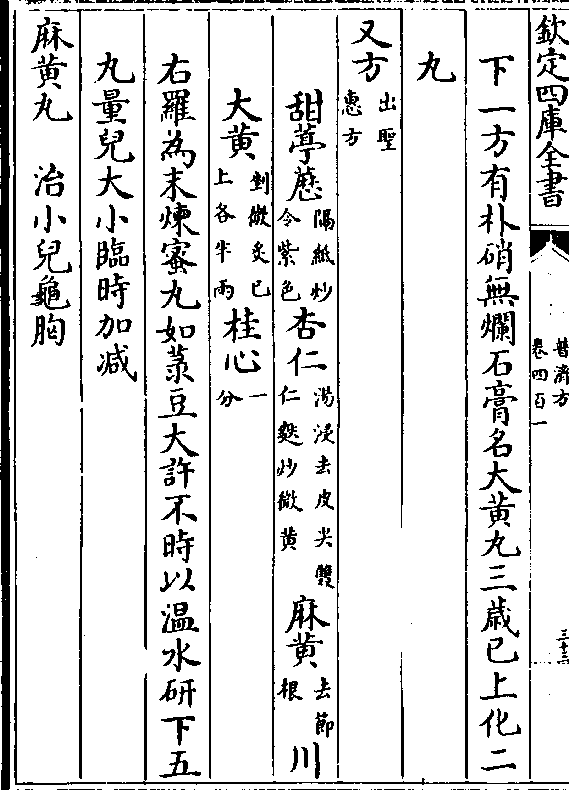 欽定四庫全書
普濟方
卷四百一
三十三
下一方有朴硝無爛石膏名大黄丸三歳已上化二
丸
又方出聖惠方
甜葶藶隔紙炒令紫色杏仁湯浸去皮尖雙仁麩炒微黄麻黄去節根川
大黄剉微炙已上各半兩桂心一分
右羅為末煉蜜丸如菉豆大許不時以温水研下五
丸量兒大小臨時加减
麻黄丸 治小兒龜胸